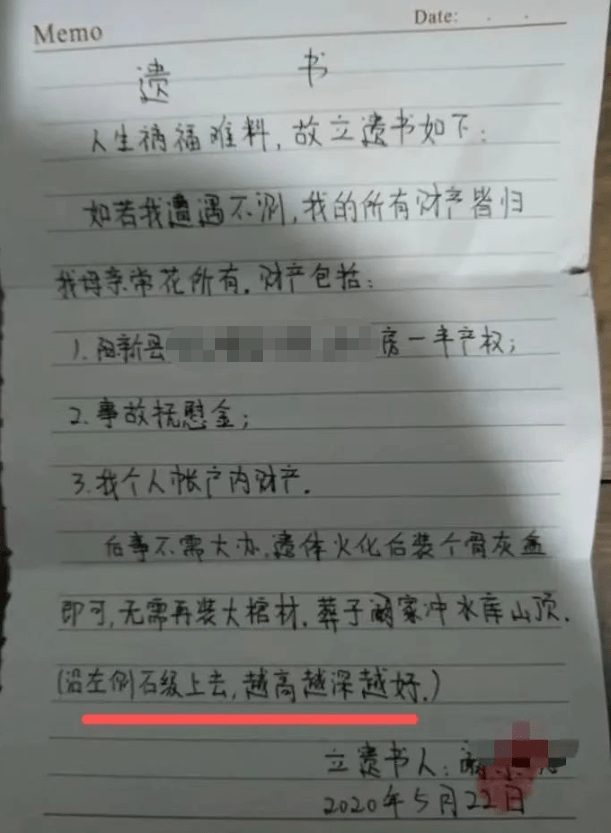 Memo
Date: . .
遗 书
人生祸福难料，故立遗书如下：
如若我遭遇不测，我的所有财产皆归
我母亲常花所有。财产包括：
1.阳新县 房一半产权；
2.事故抚慰金；
3.我个人帐户内财产.
后事不需大办，遗体火化后装个骨灰盒
即可，无需再装大棺材.葬于阚家冲水库山顶.
(沿左侧石级上去，越高越深越好.)
立遗书人：
2020年5月22日